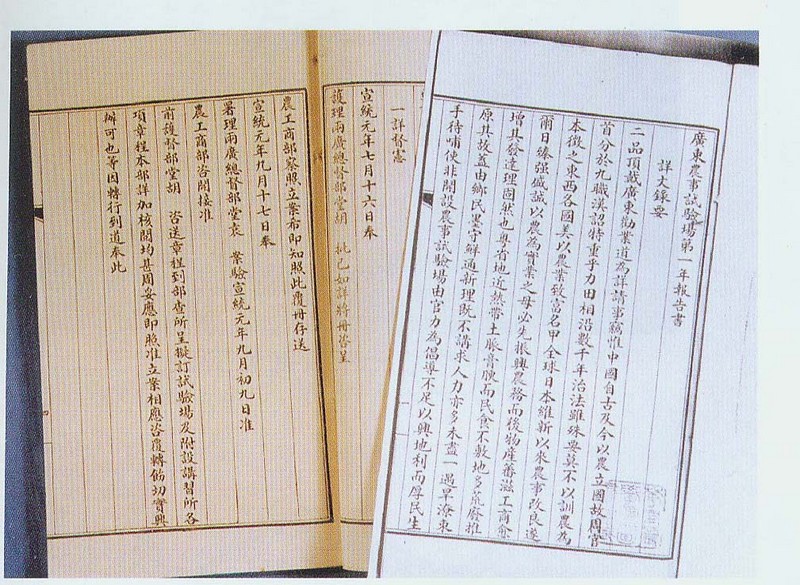 廣東農事試驗場第一年報告書
詳文錄要
二品頂戴廣東勸業道為詳請事竊惟中國自古及今以農立國故周官
首分於九職漢詔特重乎力田相沿數千年治法雖殊要莫不以訓農為
本徵之東西各國美以農業致富名甲全球日本維新以來農事改良遂
爾日臻強盛誠以農為實業之母必先振興農務而後物產蕃滋工商奮
增其發達理固然也粵省地近熱帶土脈膏腴而民食不敷地多荒廢推
原其故蓋由鄉民墨守鮮通新理既不講求人力亦多未盡一遇旱潦束
手待哺使非開設農事試驗場由官力為倡導不足以興地利而厚民生
一詳督憲
宣統元年七月十六日奉
護理兩廣總督部堂胡 批已如詳將冊咨呈
農工商部察照立案布即知照此覆冊存送
宣統元年九月十七日奉
署理兩廣總督部堂袁 案驗宣統元年九月初九日准
農工商部咨開接准
前護督部堂胡 咨送章程到部查所呈擬訂試驗場及附設講習所各
項章程本部詳加核閱均甚周妥應即照准立案相應咨覆轉飭切實興
辦可也等因轉行到道奉此
四
一